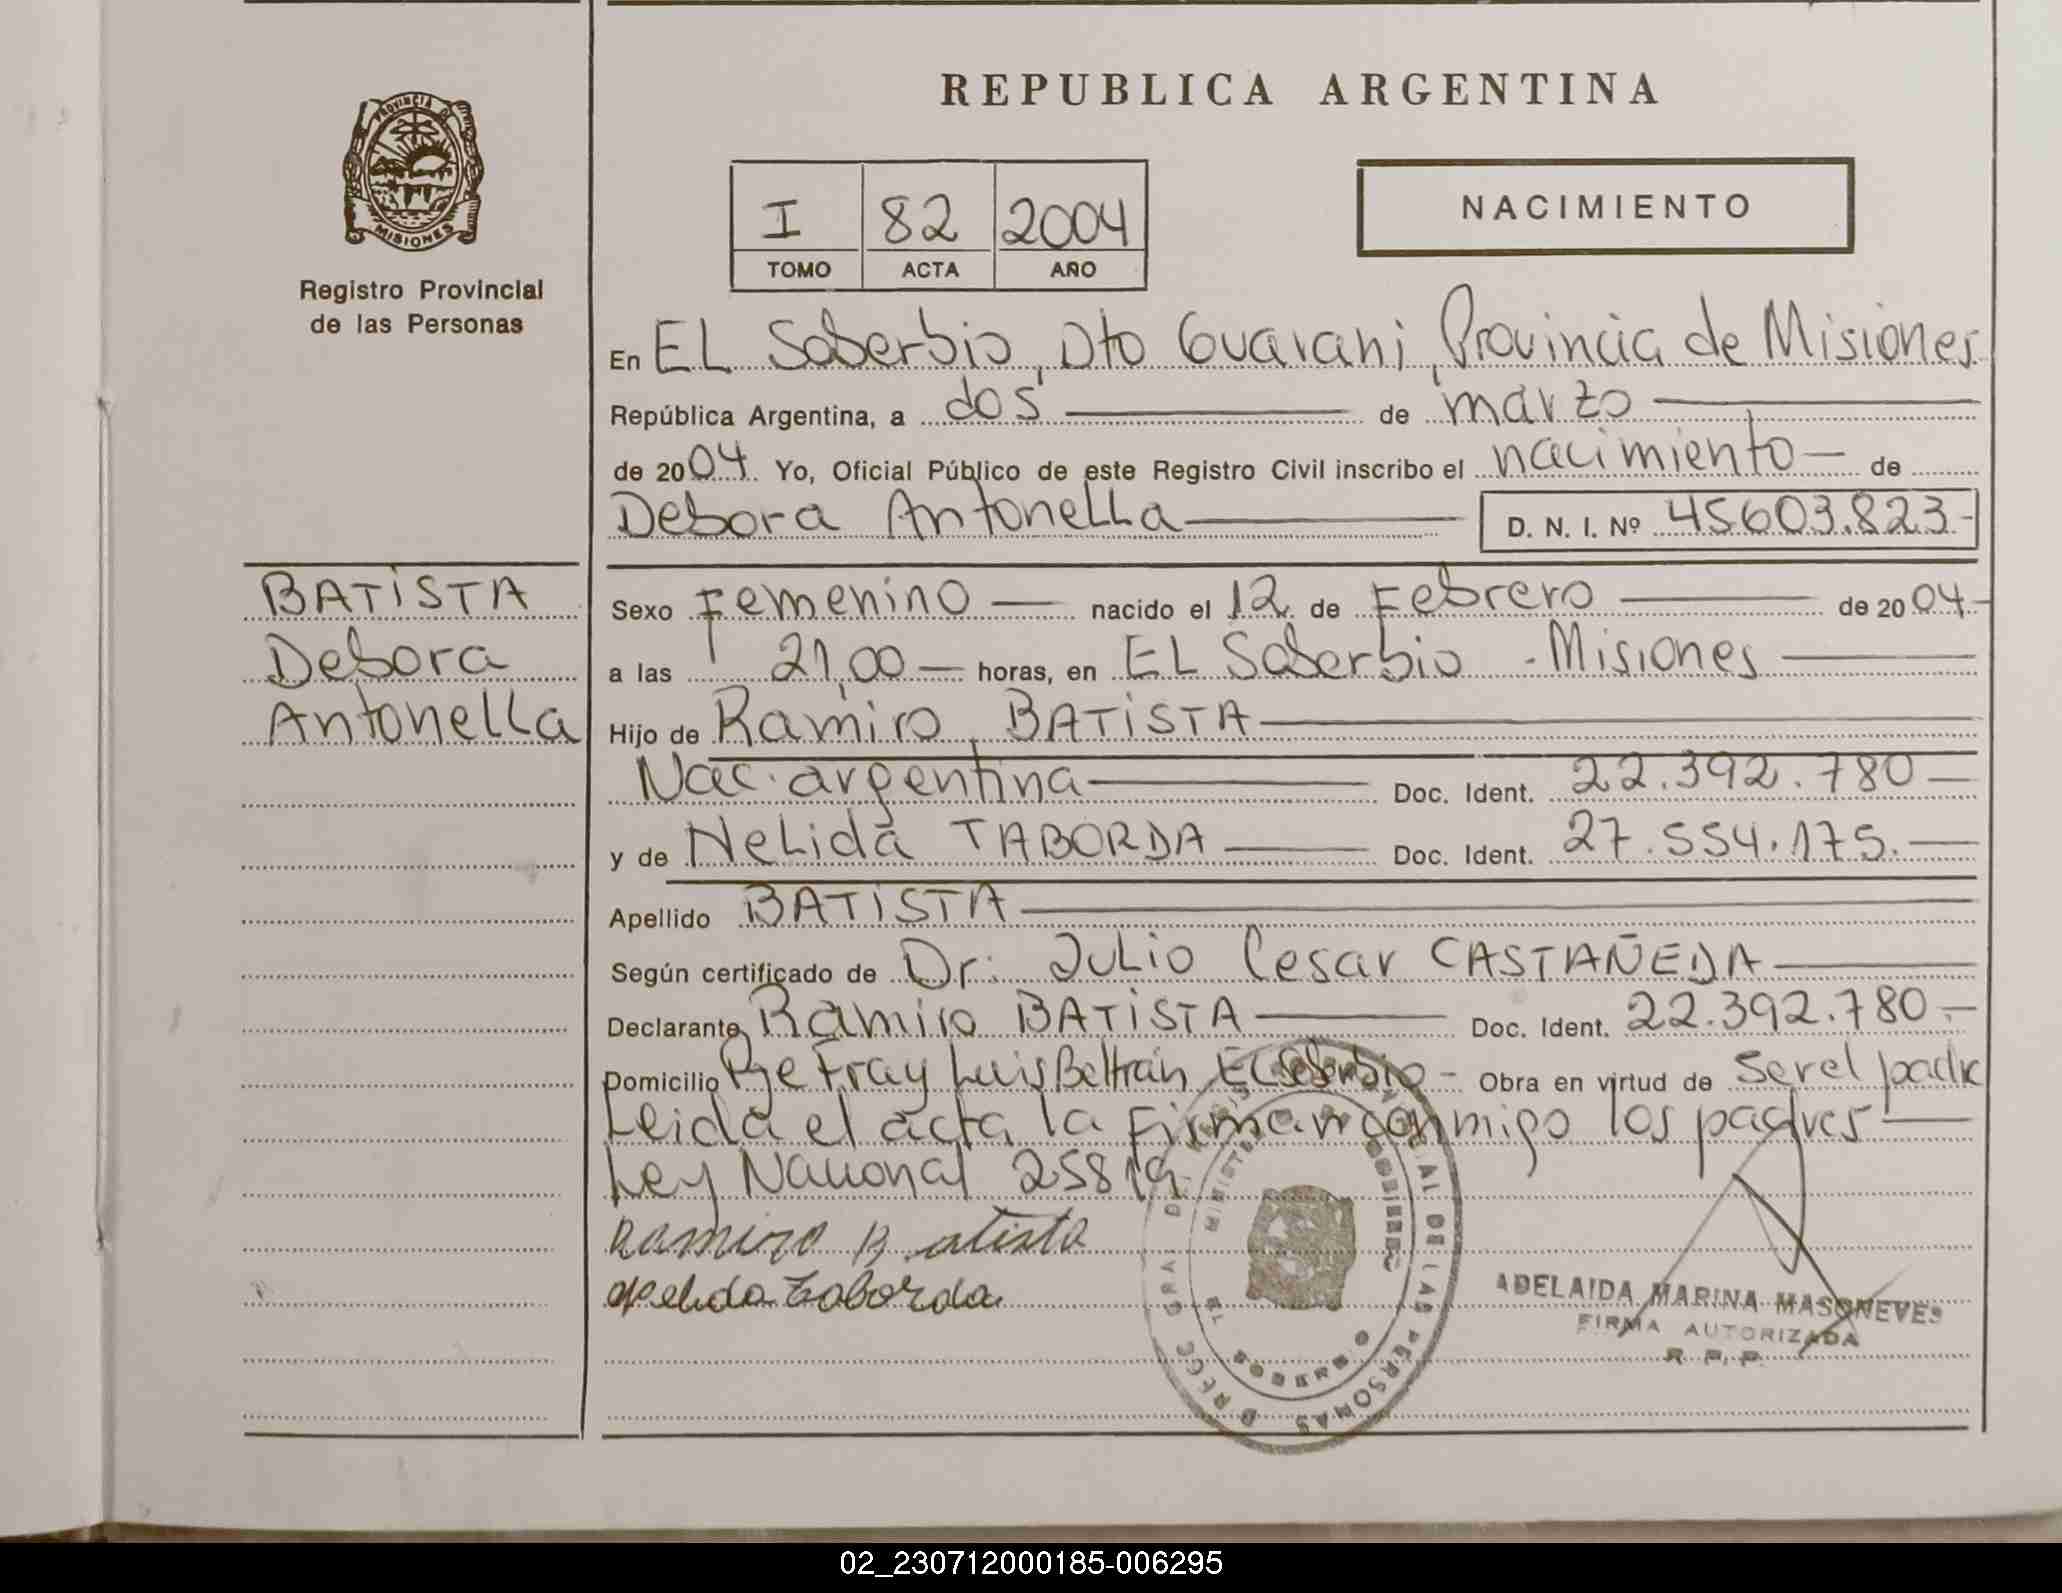 PROVINCIA DE
MISIONES
Registro Provincial
de las Personas
BATISTA
Debora
Antonella
REPUBLICA ARGENTINA
I 82 2004
TOMO ACTA AÑO
NACIMIENTO
En EL Soberbio, Dto Guarani, Provincia de Misiones
República Argentina, a dos de marzo
de 2004 Yo, Oficial Público de este Registro Civil inscribo el nacimiento de
Debora Antonella D. N. I. Nº 45603.823.-
Sexo Femenino nacido el 12 de Febrero de 2004.-
a las 21,00 horas, en EL Soberbio - Misiones
Hijo de Ramiro BATISTA
Nac. argentina Doc. Ident. 22.392.780
y de Nelida TABORDA Doc. Ident. 27.554.175.
Apellido BATISTA
Según certificado de Dr. Julio Cesar CASTAÑEDA
Declarante Ramiro BATISTA Doc. Ident. 22.392.780.-
Domicilio Pje Fray Luis Beltrán El Soberbio - Obra en virtud de ser el padre
Leida el acta la firman conmigo los padres
Ley Nacional 25819
Ramiro Batista
Nelida Taborda
ADELAIDA MARINA MASONEVES
FIRMA AUTORIZADA
R. P. P.
EL SOBERBIO
02_230712000185-006295